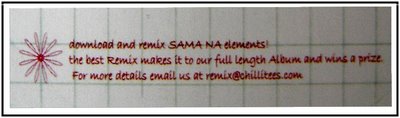 download and remix SAMA NA elements!
the best Remix makes it to our full length Album and wins a prize.
For more details email us at remix@chillitees.com